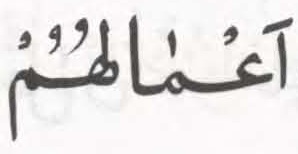 اَعْمٰالُهُمْ